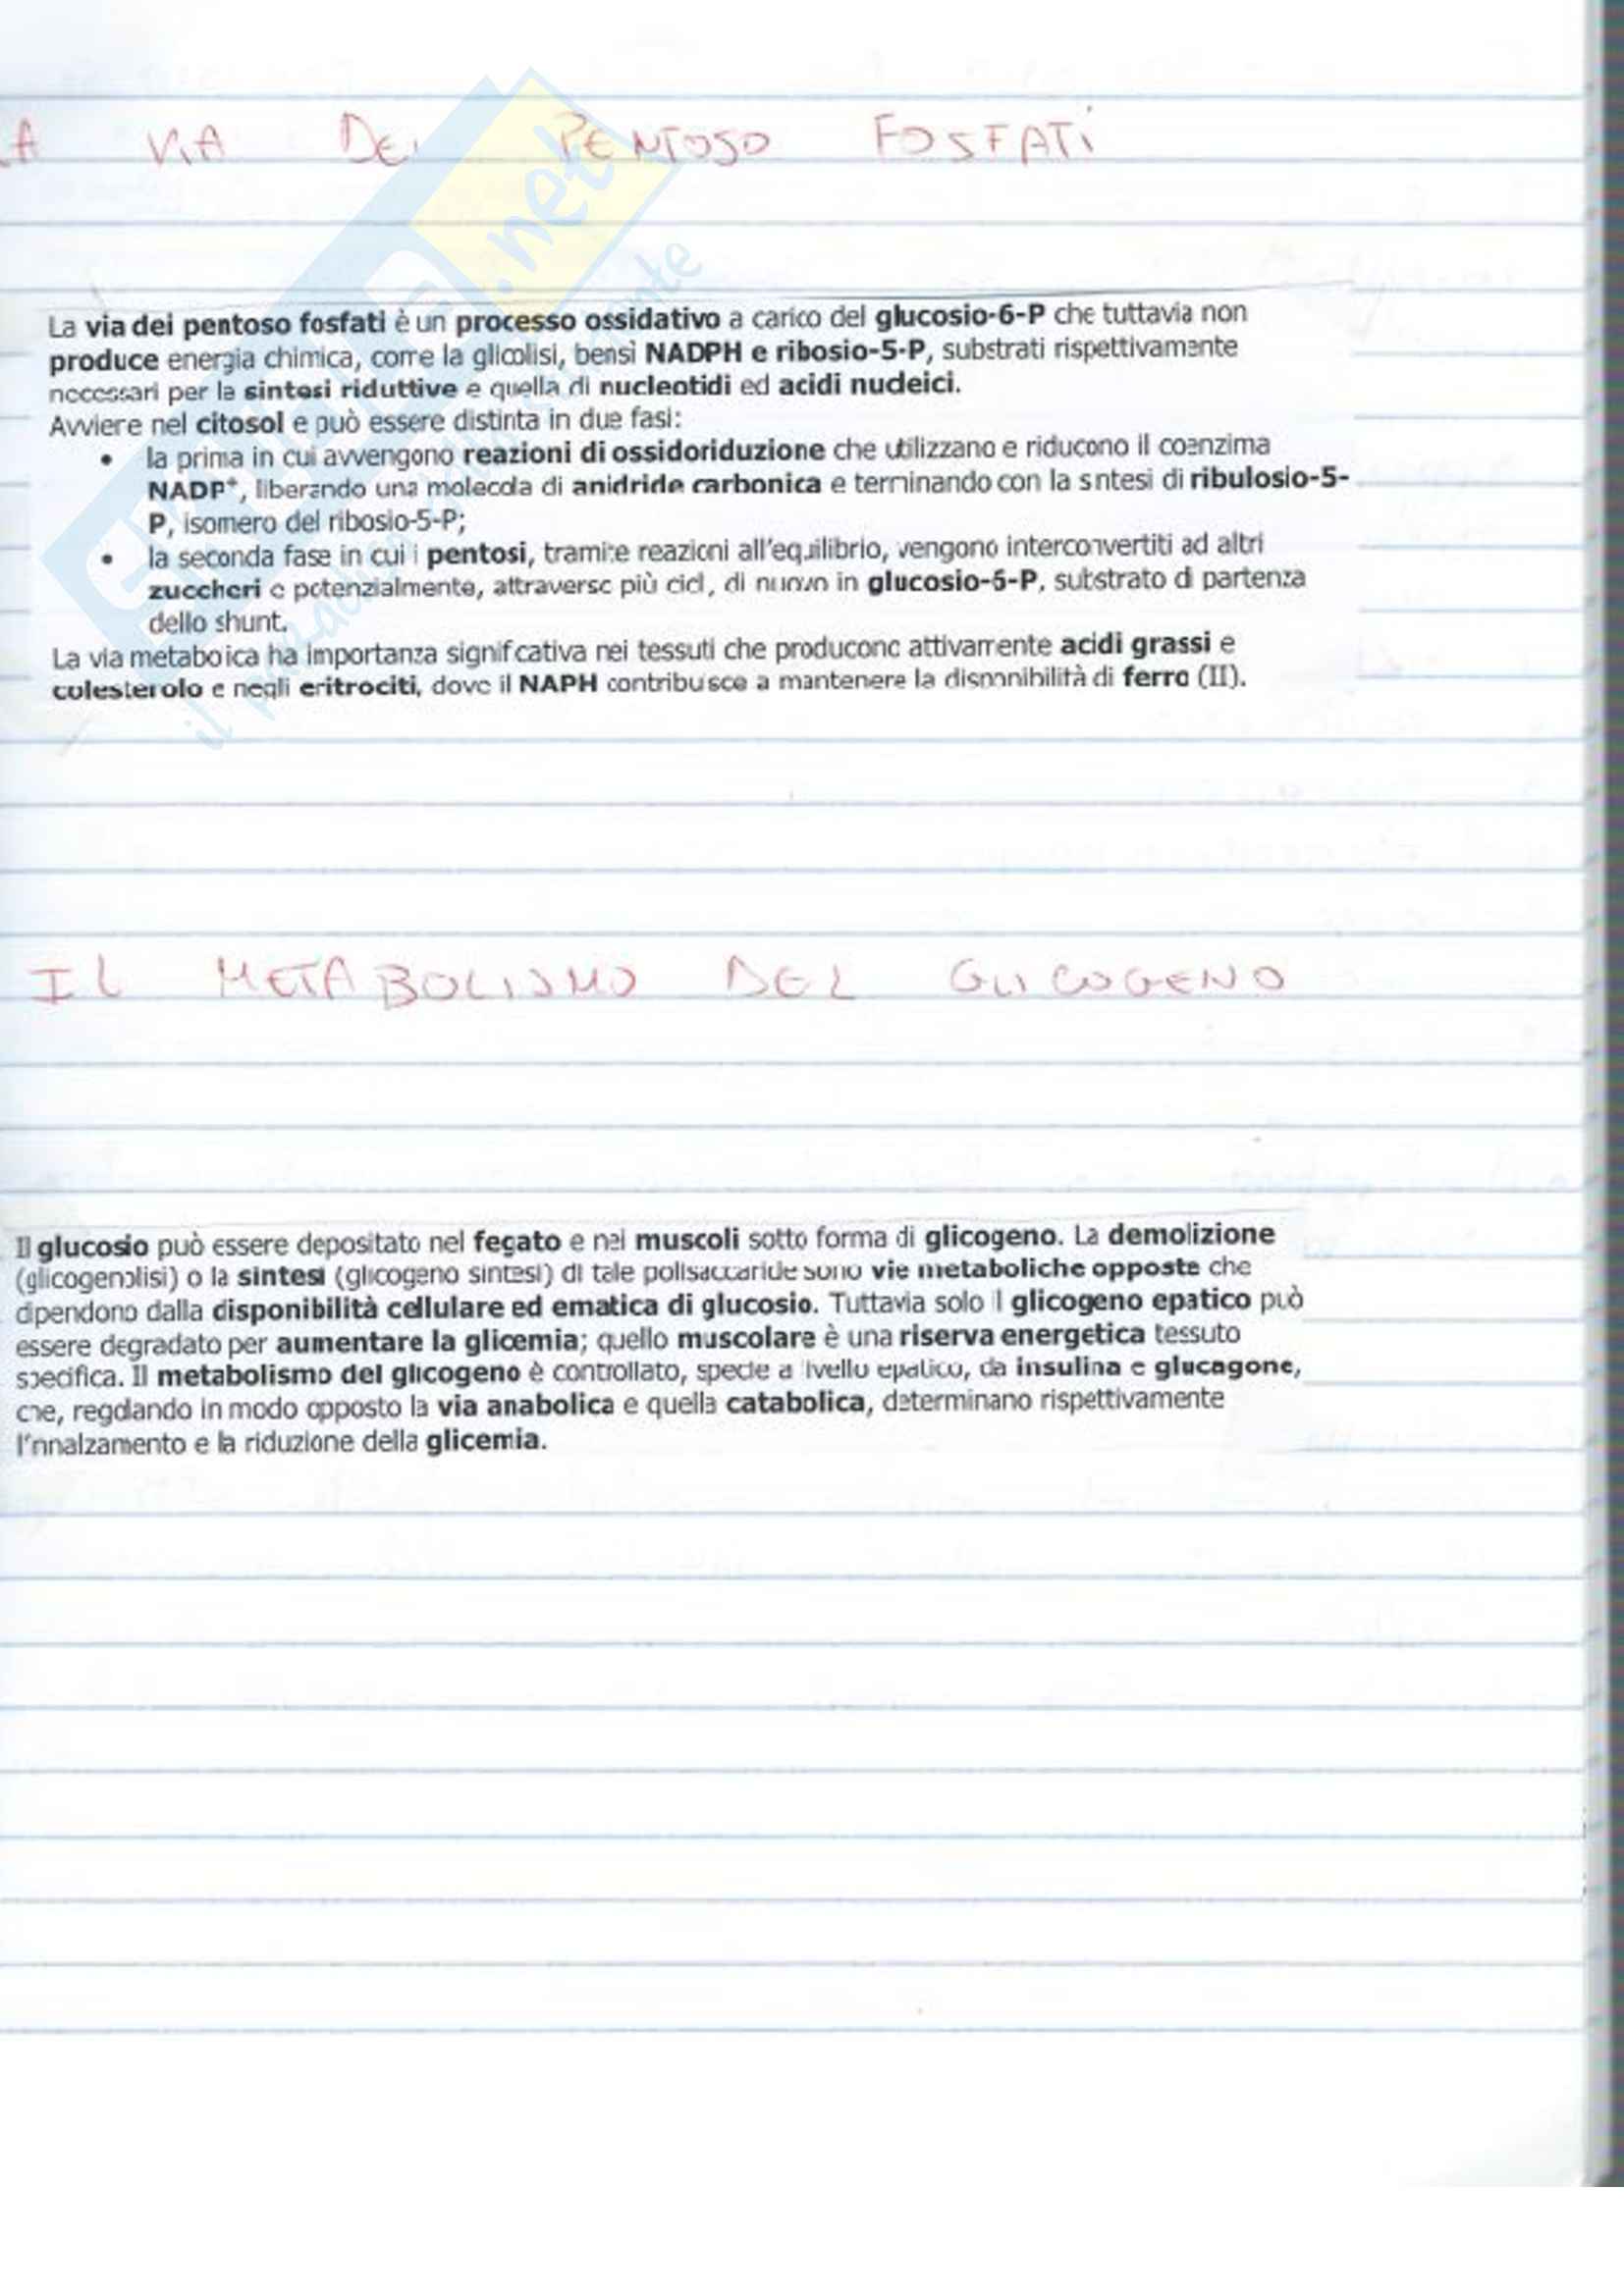 LA VIA DEI PENTOSO FOSFATI
La via dei pentoso fosfati è un processo ossidativo a carico del glucosio-6-P che tuttavia non
produce energia chimica, come la glicolisi, bensì NADPH e ribosio-5-P, substrati rispettivamente
necessari per la sintesi riduttive e quella di nucleotidi ed acidi nucleici.
Avviene nel citosol e può essere distinta in due fasi:
• la prima in cui avvengono reazioni di ossidoriduzione che utilizzano e riducono il coenzima
NADP⁺, liberando una molecola di anidride carbonica e terminando con la sintesi di ribulosio-5-
P, isomero del ribosio-5-P;
• la seconda fase in cui i pentosi, tramite reazioni all'equilibrio, vengono interconvertiti ad altri
zuccheri e potenzialmente, attraverso più cicli, di nuovo in glucosio-6-P, substrato di partenza
dello shunt.
La via metabolica ha importanza significativa nei tessuti che producono attivamente acidi grassi e
colesterolo e negli eritrociti, dove il NAPH contribuisce a mantenere la disponibilità di ferro (II).
IL METABOLISMO DEL GLICOGENO
Il glucosio può essere depositato nel fegato e nei muscoli sotto forma di glicogeno. La demolizione
(glicogenolisi) o la sintesi (glicogeno sintesi) di tale polisaccaride sono vie metaboliche opposte che
dipendono dalla disponibilità cellulare ed ematica di glucosio. Tuttavia solo il glicogeno epatico può
essere degradato per aumentare la glicemia; quello muscolare è una riserva energetica tessuto
specifica. Il metabolismo del glicogeno è controllato, specie a livello epatico, da insulina e glucagone,
che, regolando in modo opposto la via anabolica e quella catabolica, determinano rispettivamente
l'innalzamento e la riduzione della glicemia.